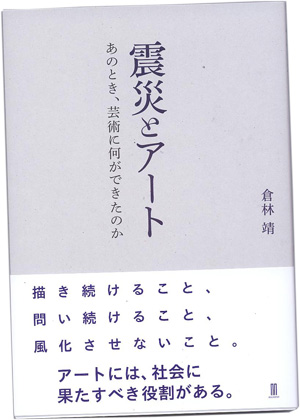 震災とアート
あのとき、芸術に何ができたのか
倉林 靖
描き続けること、
問い続けること、
風化させないこと。
アートには、社会に
果たすべき役割がある。